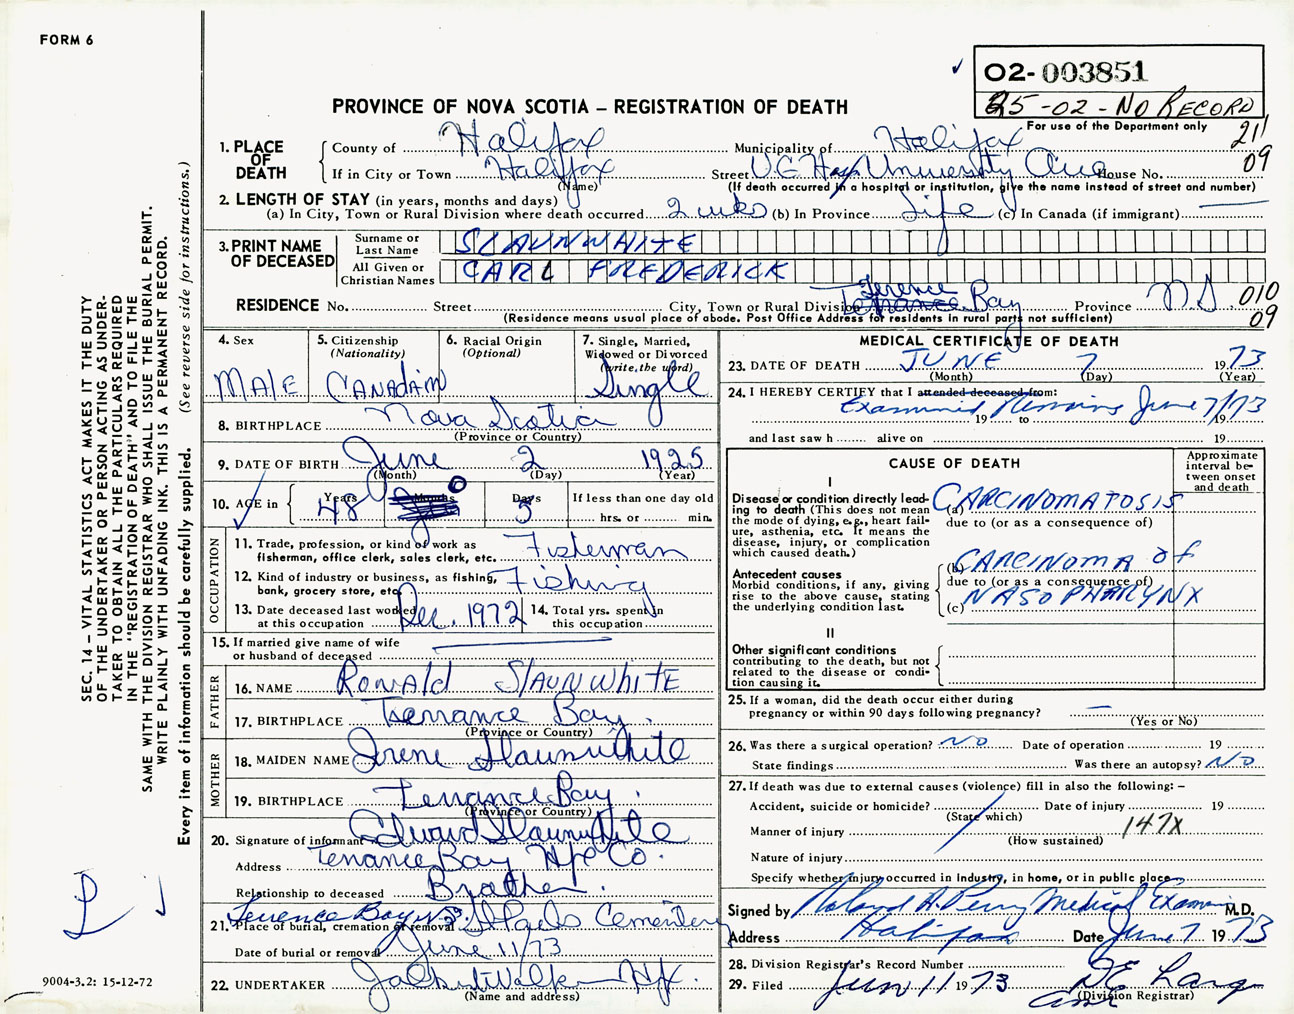 FORM 6
02-003851
25-02-NO RECORD
For use of the Department only
21
09
PROVINCE OF NOVA SCOTIA – REGISTRATION OF DEATH
1. PLACE OF DEATH
County of Halifax Municipality of Halifax
If in City or Town Halifax Street V.G. Hosp University Ave House No.
(Name) (If death occurred in a hospital or institution, give the name instead of street and number)
2. LENGTH OF STAY (in years, months and days)
(a) In City, Town or Rural Division where death occurred 2 wks (b) In Province Life (c) In Canada (if immigrant) —
3. PRINT NAME OF DECEASED
Surname or Last Name SLAUNWHITE
All Given or Christian Names CARL FREDERICK
RESIDENCE No. Street City, Town or Rural Division Terence Bay Province NS 010
(Residence means usual place of abode. Post Office Address for residents in rural parts not sufficient) 09
4. Sex
MALE
5. Citizenship (Nationality)
CANADAIN
6. Racial Origin (Optional)
7. Single, Married, Widowed or Divorced (write the word)
Single
8. BIRTHPLACE Nova Scotia
(Province or Country)
9. DATE OF BIRTH June 2 1925
(Month) (Day) (Year)
10. AGE in Years 48 Months 0 Days 5 If less than one day old
hrs. or min.
OCCUPATION
11. Trade, profession, or kind of work as fisherman, office clerk, sales clerk, etc. Fisherman
12. Kind of industry or business, as fishing, bank, grocery store, etc. Fishing
13. Date deceased last worked at this occupation Dec. 1972
14. Total yrs. spent in this occupation
15. If married give name of wife or husband of deceased —
FATHER
16. NAME RONALD SLAUNWHITE
17. BIRTHPLACE Terrance Bay.
(Province or Country)
MOTHER
18. MAIDEN NAME Irene Slaunwhite
19. BIRTHPLACE Terrance Bay.
(Province or Country)
20. Signature of informant Edward Slaunwhite
Address Terrance Bay Hfx Co.
Relationship to deceased Brother.
21. Place of burial, cremation or removal Terence Bay N.S. St Pauls Cementery
Date of burial or removal June 11/73
22. UNDERTAKER Walker Hfx.
(Name and address)
MEDICAL CERTIFICATE OF DEATH
23. DATE OF DEATH JUNE 7 1973
(Month) (Day) (Year)
24. I HEREBY CERTIFY that I attended deceased from:
Examined Remains June 7/73
19 to 19
and last saw h alive on 19
CAUSE OF DEATH
Approximate interval between onset and death
I
Disease or condition directly leading to death (This does not mean the mode of dying, e.g., heart failure, asthenia, etc. It means the disease, injury, or complication which caused death.)
(a) CARCINOMATOSIS
due to (or as a consequence of)
Antecedent causes
Morbid conditions, if any, giving rise to the above cause, stating the underlying condition last.
(b) CARCINOMA of
due to (or as a consequence of)
(c) NASOPHARYNX
II
Other significant conditions
contributing to the death, but not related to the disease or condition causing it.
25. If a woman, did the death occur either during pregnancy or within 90 days following pregnancy? —
(Yes or No)
26. Was there a surgical operation? NO Date of operation 19
State findings Was there an autopsy? NO
27. If death was due to external causes (violence) fill in also the following: –
Accident, suicide or homicide? Date of injury 19
(State which)
Manner of injury 147X
(How sustained)
Nature of injury
Specify whether injury occurred in Industry, in home, or in public place
Signed by Roland A. Perry Medical Examiner M.D.
Address Halifax Date June 7 1973
28. Division Registrar's Record Number
29. Filed Jun 11 1973
(Division Registrar)
SEC. 14 – VITAL STATISTICS ACT MAKES IT THE DUTY
OF THE UNDERTAKER OR PERSON ACTING AS UNDER-
TAKER TO OBTAIN ALL THE PARTICULARS REQUIRED
IN THE "REGISTRATION OF DEATH" AND TO FILE THE
SAME WITH THE DIVISION REGISTRAR WHO SHALL ISSUE THE BURIAL PERMIT.
WRITE PLAINLY WITH UNFADING INK. THIS IS A PERMANENT RECORD.
Every item of information should be carefully supplied. (See reverse side for instructions.)
9004-3.2: 15-12-72